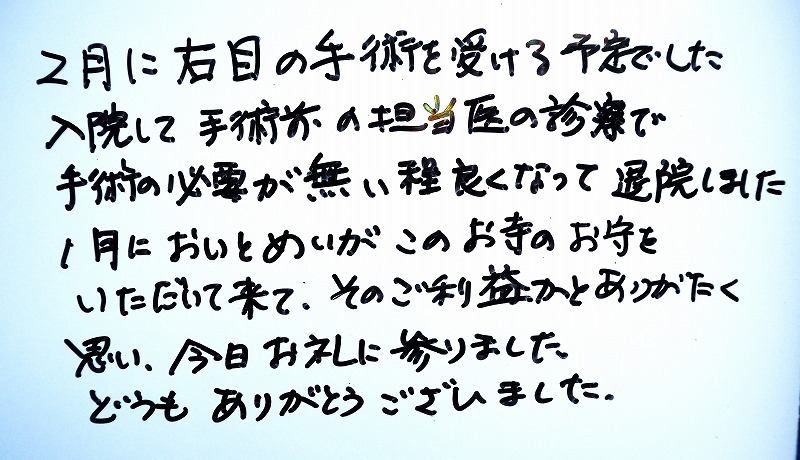 2月に右目の手術を受ける予定でした
入院して手術前の担当医の診察で
手術の必要が無い程良くなって退院しました
1月においとめいがこのお寺のお守を
いただいて来て、そのご利益かとありがたく
思い、今日お礼に参りました。
どうもありがとうございました。